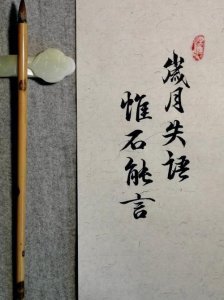 歲月失语
惟石能言